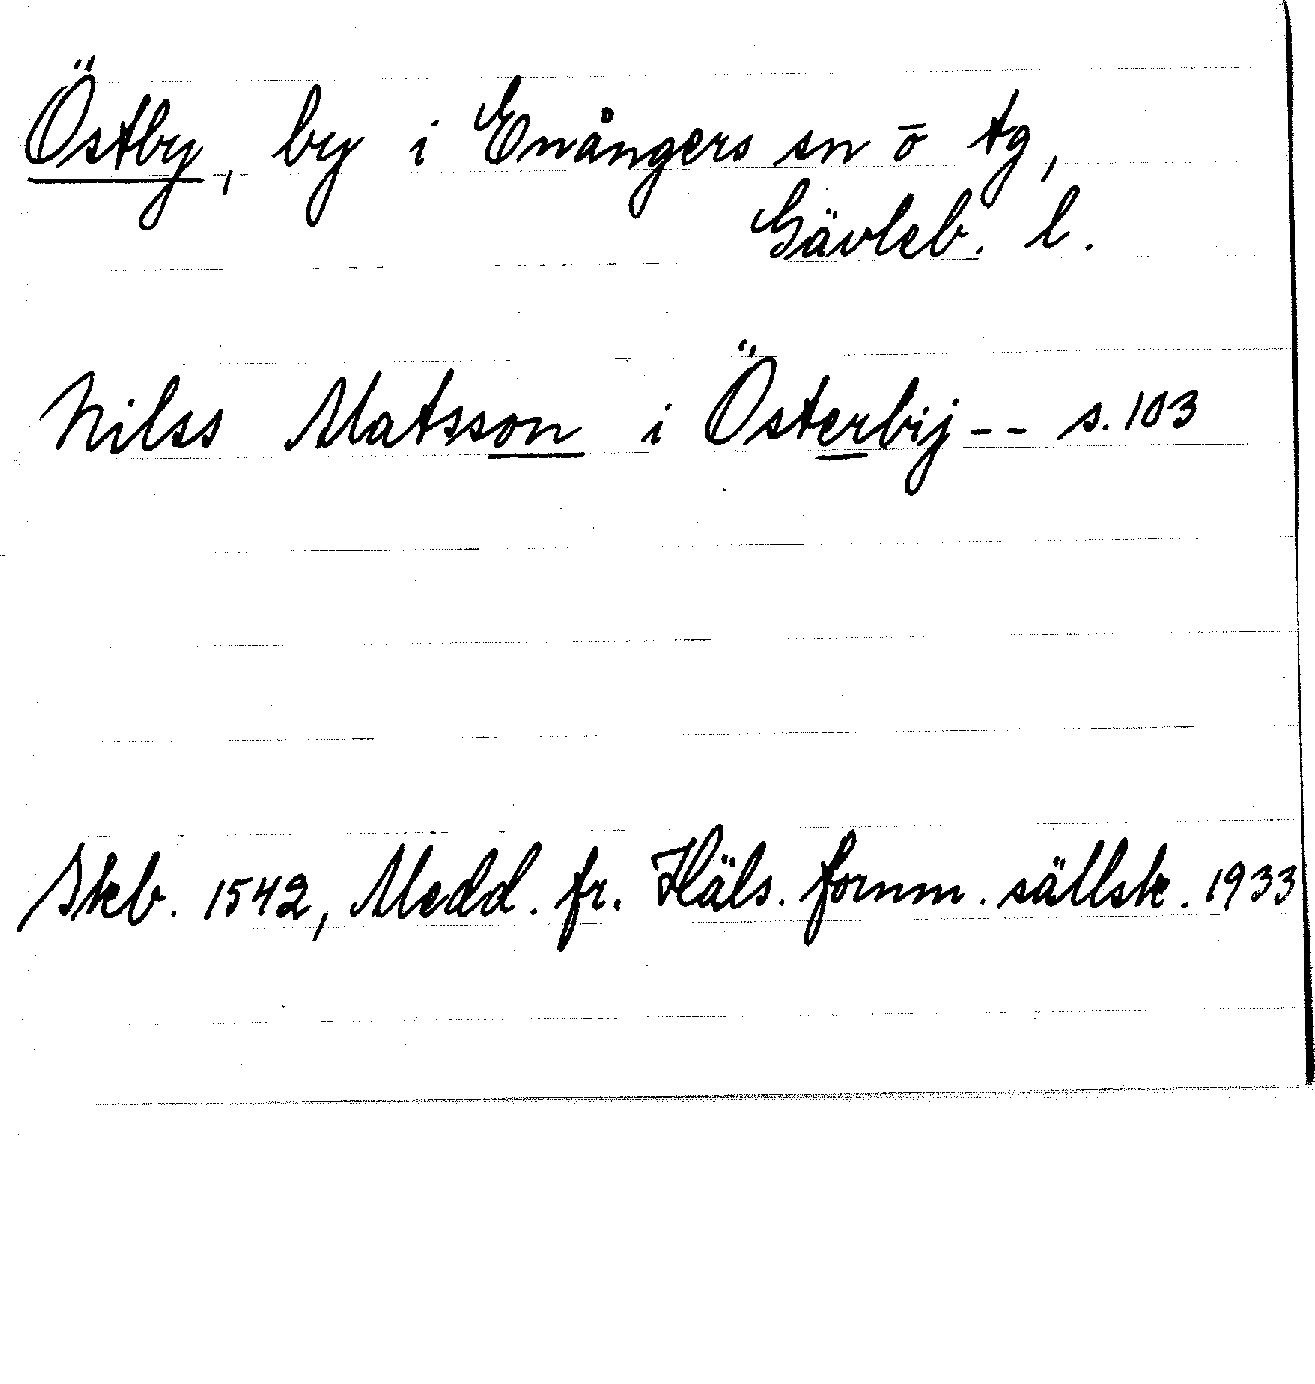 Östby, by i Enångers sn ō tg,
Gävleb. l.
Nilss Matsson i Österbij -- s. 103
Skb. 1542, Medd. fr. Häls. fornm. sällsk. 1933